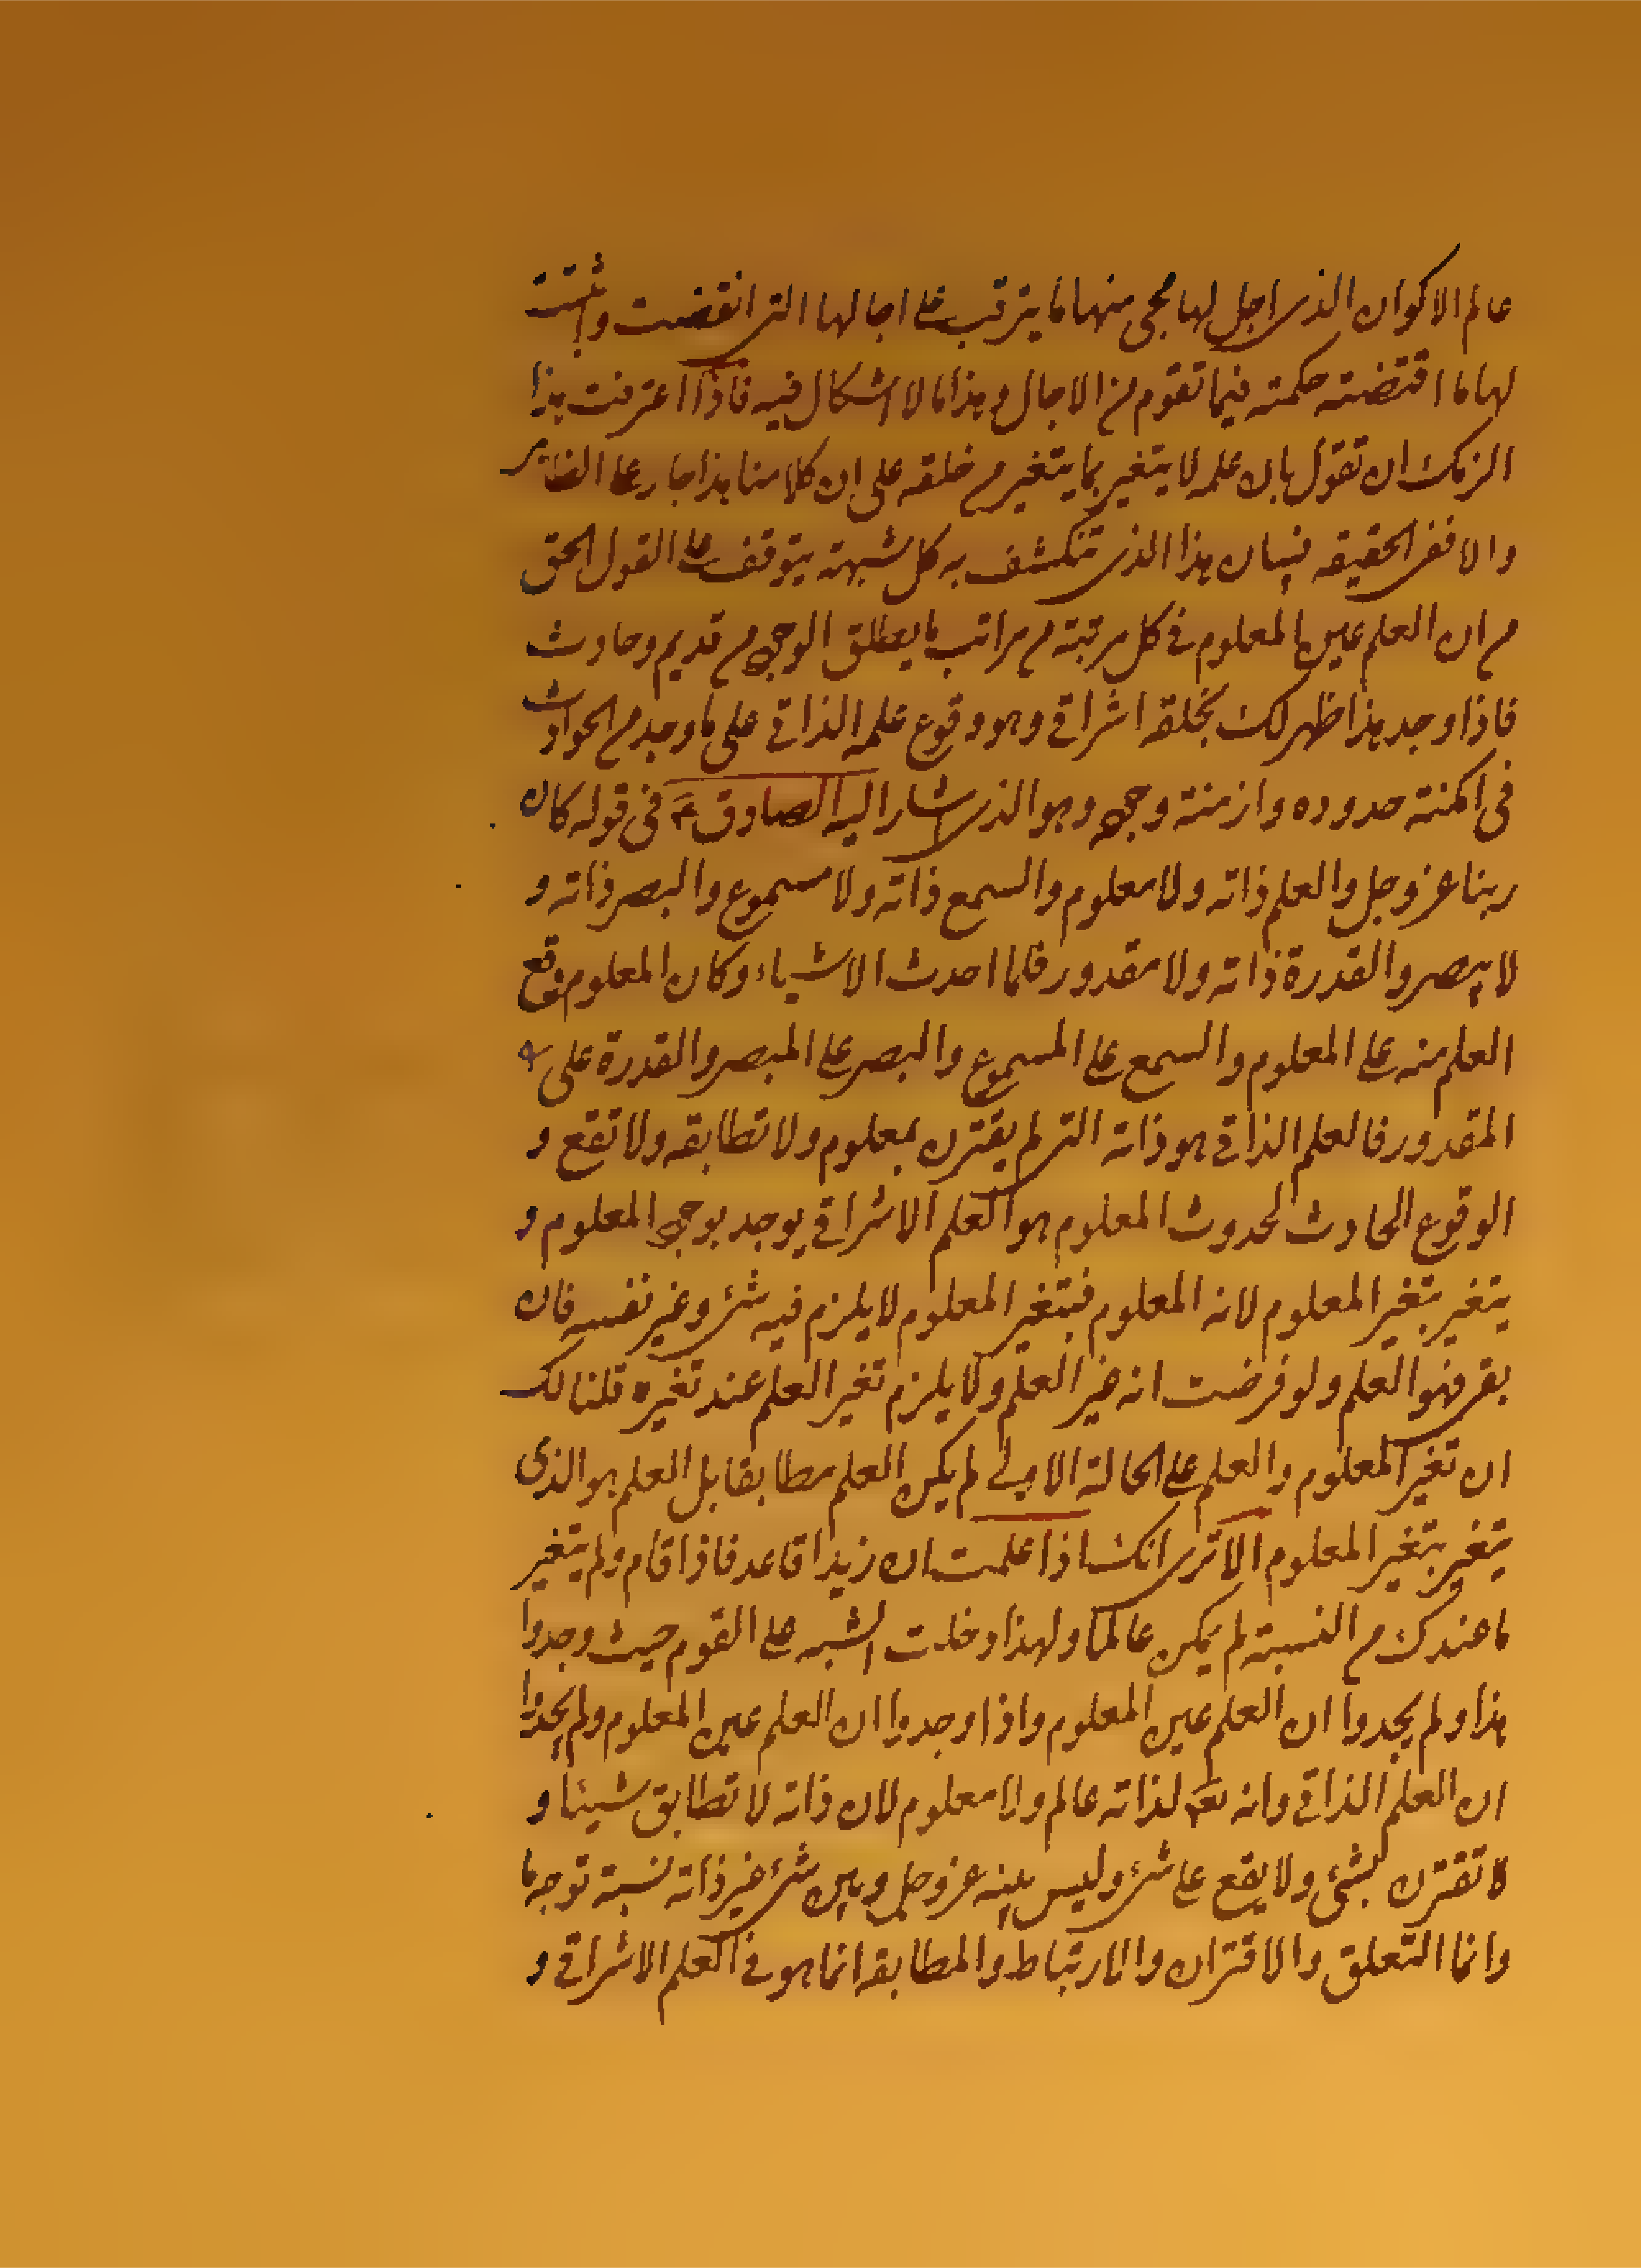 عالم الاكوان الذى اجل لها محى منها ما يترقب على اجالها التى انقضت واثبتت
لها ما اقتضته حكمته فيما تقوم من الاجال وهذا مالا اشكال فيه فاذا اعترفت بهذا
الزمك ان تقول بان علمه لا يتغير بما يتغير من خلقه على ان كلامنا هذا جار على الظاهر
والا ففى الحقيقه فبيان هذا الذى تنكشف به كل شبهة يتوقف على القول الحق
من ان العلم عين المعلوم فى كل مرتبة من مراتب ما يعطلق الوجود من قديم وحادث
فاذا وجد هذا ظهر لك بخلقه اشراقى وهو وقوع علمه الذاتى على ما وجد من الحوادث
فى امكنة حدوده وازمنة وجوده وهو الذى اشار اليه الصادق ع فى قوله كان
ربنا عز وجل والعلم ذاته ولا معلوم والسمع ذاته ولا مسموع والبصر ذاته و
لا مبصر والقدرة ذاته ولا مقدور فلما احدث الاشياء وكان المعلوم وقع
العلم منه على المعلوم والسمع على المسموع والبصر على المبصر والقدرة على
المقدور فالعلم الذاتى هو ذاته التى لم يقترن بمعلوم ولا تطابقه ولا تقع و
الوقوع الحادث لحدوث المعلوم هو العلم الاشراقى يوجد بوجود المعلوم و
يتغير بتغير المعلوم لانه المعلوم فبتغير المعلوم لا يلزم فيه شئ وغير نفسه فان
بقى فهو العلم ولو فرضت انه غير العلم ولا يلزم تغير العلم عند تغيره قلنا لك
ان تغير المعلوم والعلم على الحالة الاولى لم يكن العلم مطابقا بل العلم هو الذى
يتغير بتغير المعلوم الا ترى انك اذا علمت ان زيدا قاعد فاذا قام ولم يتغير
ما عندك من النسبة لم يكن عالما ولهذا دخلت الشبه على القوم حيث وجدوا
هذا ولم يجدوا ان العلم عين المعلوم واذا وجدوا ان العلم عين المعلوم ولم يجدوا
ان العلم الذاتى وانه تع لذاته عالم ولا معلوم لان ذاته لا تطابق شيئا و
لا تقترن بشئ ولا يقع على شئ وليس بينه عز وجل وبين شئ غير ذاته نسبة توجه ما
وانما التعلق والاقتران والارتباط والمطابقه انما هو فى العلم الاشراقى و